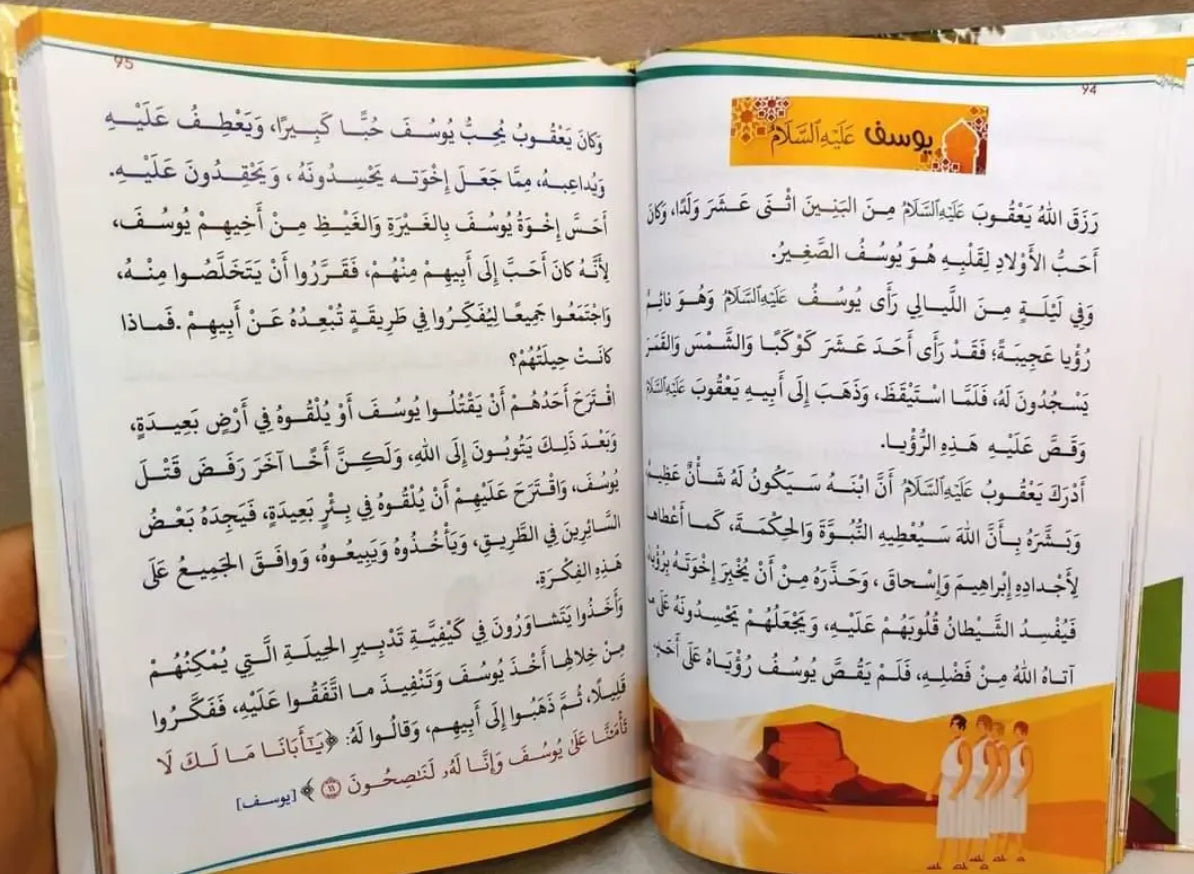 94
يوسف عَلَيْهِ السَّلَامُ
رَزَقَ اللهُ يَعْقُوبَ عَلَيْهِ السَّلَامُ مِنَ البَنِينَ اثْنَى عَشَرَ وَلَدًا، وَكانَ
أَحَبُّ الأَوْلادِ لِقَلْبِهِ هُوَ يُوسُفُ الصَّغِيرُ.
وَفِي لَيْلَةٍ مِنَ اللَّيالِي رَأَى يُوسُفُ عَلَيْهِ السَّلَامُ وَهُوَ نائِمٌ
رُؤْيا عَجِيبَةً؛ فَقَدْ رَأَى أَحَدَ عَشَرَ كَوْكَبًا وَالشَّمْسَ وَالقَمَرَ
يَسْجُدُونَ لَهُ، فَلَمَّا اسْتَيْقَظَ، وَذَهَبَ إِلَى أَبِيهِ يَعْقُوبَ عَلَيْهِ السَّلَامُ
وَقَصَّ عَلَيْهِ هَذِهِ الرُّؤْيا.
أَدْرَكَ يَعْقُوبُ عَلَيْهِ السَّلَامُ أَنَّ ابْنَهُ سَيَكُونُ لَهُ شَأْنٌ عَظِيمٌ
وَبَشَّرَهُ بِأَنَّ اللهَ سَيُعْطِيهِ النُّبُوَّةَ وَالحِكْمَةَ، كَما أَعْطاها
لِأَجْدادِهِ إِبْراهِيمَ وَإِسْحاقَ، وَحَذَّرَهُ مِنْ أَنْ يُخْبِرَ إِخْوَتَهُ بِرُؤْياهُ
فَيُفْسِدُ الشَّيْطانُ قُلُوبَهُمْ عَلَيْهِ، وَيَجْعَلُهُمْ يَحْسِدُونَهُ عَلَى ما
آتاهُ اللهُ مِنْ فَضْلِهِ، فَلَمْ يَقُصَّ يُوسُفُ رُؤْيَاهُ عَلَى أَحَدٍ.
95
وَكانَ يَعْقُوبُ يُحِبُّ يُوسُفَ حُبًّا كَبِيرًا، وَيَعْطِفُ عَلَيْهِ
وَيُداعِبهُ، مِمَّا جَعَلَ إِخْوَته يَحْسِدُونَهُ، وَيَحْقِدُونَ عَلَيْهِ.
أَحَسَّ إِخْوَةُ يُوسُفَ بِالغَيْرَةِ وَالغَيْظِ مِنْ أَخِيهِمْ يُوسُفَ،
لِأَنَّهُ كانَ أَحَبَّ إِلَى أَبِيهِمْ مِنْهُمْ، فَقَرَّرُوا أَنْ يَتَخَلَّصُوا مِنْهُ،
وَاجْتَمَعُوا جَمِيعًا لِيُفَكِّرُوا فِي طَرِيقَةٍ تُبْعِدُهُ عَنْ أَبِيهِمْ .فَماذا
كانَتْ حِيلَتُهُمْ؟
اقْتَرَحَ أَحَدُهُمْ أَنْ يَقْتُلُوا يُوسُفَ أَوْ يُلْقُوهُ فِي أَرْضٍ بَعِيدَةٍ،
وَبَعْدَ ذَلِكَ يَتُوبُونَ إِلَى اللهِ، وَلَكِنَّ أَخًا آخَرَ رَفَضَ قَتْلَ
يُوسُفَ، وَاقْتَرَحَ عَلَيْهِمْ أَنْ يُلْقُوهُ فِي بِئْرٍ بَعِيدَةٍ، فَيَجِدَهُ بَعْضُ
السَّائِرِينَ فِي الطَّرِيقِ، وَيَأْخُذُوهُ وَيَبِيعُوهُ، وَوافَقَ الجَمِيعُ عَلَى
هَذِهِ الفِكْرَةِ.
وَأَخَذُوا يَتَشاوَرُونَ فِي كَيْفِيَّةِ تَدْبِيرِ الحِيلَةِ الَّتِي يُمْكِنُهُمْ
مِنْ خِلالِها أَخْذَ يُوسُفَ وَتَنْفِيذَ ما اتَّفَقُوا عَلَيْهِ، فَفَكَّرُوا
قَلِيلًا، ثُمَّ ذَهَبُوا إِلَى أَبِيهِم، وَقالُوا لَهُ: ﴿يَـٰٓأَبَانَا مَا لَكَ لَا
تَأْمَ۫نَّا عَلَىٰ يُوسُفَ وَإِنَّا لَهُۥ لَنَـٰصِحُونَ ١١﴾ [يوسف]